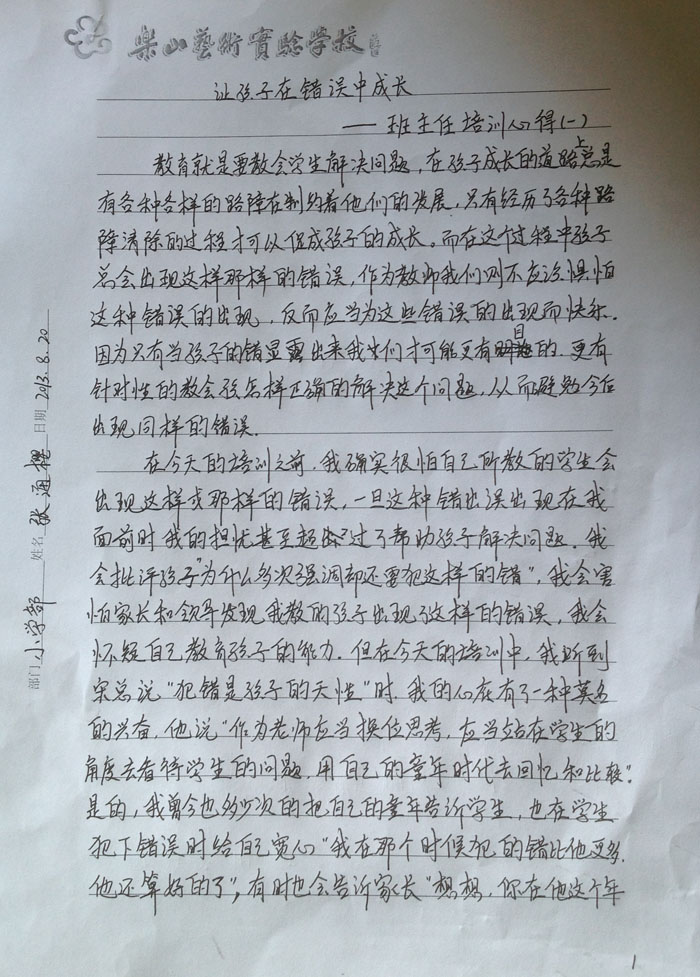 樂山藝術實驗學校
让孩子在错误中成长
——班主任培训心得(一)
教育就是要教会学生解决问题，在孩子成长的道路上总是
有各种各样的路障在制约着他们的发展，只有经历了各种路
障清除的过程才可以促成孩子的成长。而在这个过程中孩子
总会出现这样那样的错误，作为教师我们则不应该惧怕
这种错误的出现，反而应当为这些错误的出现而快乐.
因为只有当孩子的错显露出来我们才可能更有目的.更有
针对性的教会孩怎样正确的解决这个问题，从而避免今后
出现同样的错误.
在今天的培训之前.我确实很怕自己所教的学生会
出现这样或那样的错误，一旦这种错出误出现在我
面前时我的担忧甚至超过了帮助孩子解决问题.我
会批评孩子"为什么多次强调却还要犯这样的错"，我会害
怕家长和领导发现我教的孩子出现了这样的错误，我会
怀疑自己教育孩子的能力.但在今天的培训中，我听到
宋总说"犯错是孩子的天性"时.我的心底有了一种莫名
的兴奋，他说"作为老师应当换位思考，应当站在学生的
角度去看待学生的问题.用自己的童年时代去回忆和比较".
是的，我曾今也多少次的把自己的童年告诉学生，也在学生
犯下错误时给自己宽心"我在那个时候犯的错比他更多.
他还算好的了"，有时也会告诉家长"想想，你在他这个年
部门 小学部 姓名 张通樱 日期 2013.8.20
1